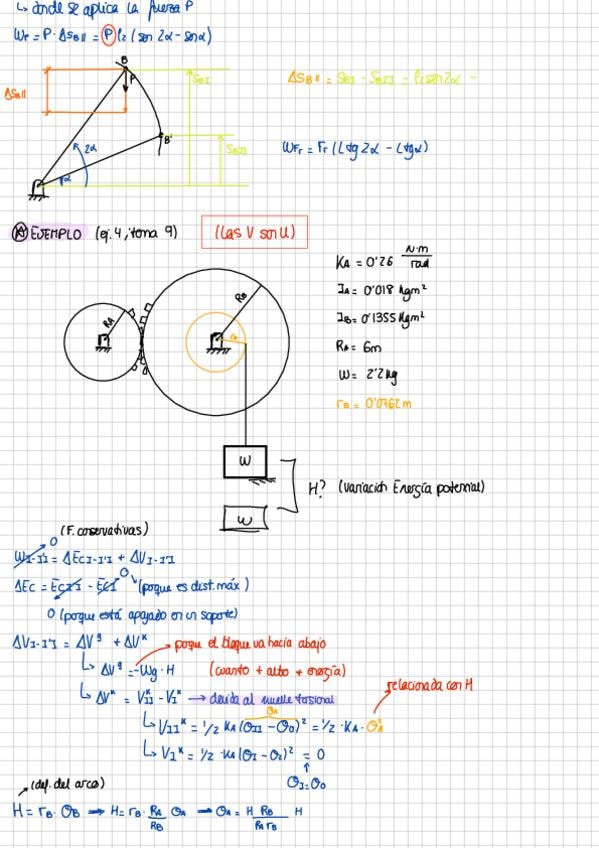 ↳ donde se aplica la fuerza P
W_F = P · ΔS_B|| = P l2 (sen 2α - senα)
B
P
S_BI
ΔS_B|| = S_BI - S_BII = l1 sen 2α -
ΔS_B||
B'
S_BII
2α
α
W_Fr = Fr (L tg 2α - L tgα)
EJEMPLO (ej. 4, tema 9) (Las V son U)
K_A = 0'26 N·m/rad
I_A = 0'018 kgm²
I_B = 0'1355 kgm²
R_A = 6m
W = 2'2 kg
r_B = 0'0762 m
R_A
R_B
W
H? (variación Energía potencial)
W
(F. coservativas)
W_I-II = ΔEc_I-II + ΔV_I-II
0
ΔEc = Ec_II - Ec_I 0 (porque es dist. máx)
0 (porque está apoyado en un soporte)
ΔV_I-II = ΔV^g + ΔV^k porque el bloque va hacia abajo
↳ ΔV^g = -Wg · H (cuanto + alto + energía)
relacionada con H
↳ ΔV^k = V_II^k - V_I^k → devida al muelle torsional
θ_A
↳ V_II^k = 1/2 K_A (θ_II - θ_0)² = 1/2 · K_A · θ_A²
↳ V_I^k = 1/2 · K_A (θ_I - θ_2)² = 0
θ_I = θ_0
(def. del arco)
H = r_B · θ_B → H = r_B · R_A/R_B θ_A → θ_A = H R_B/(R_A r_B) H